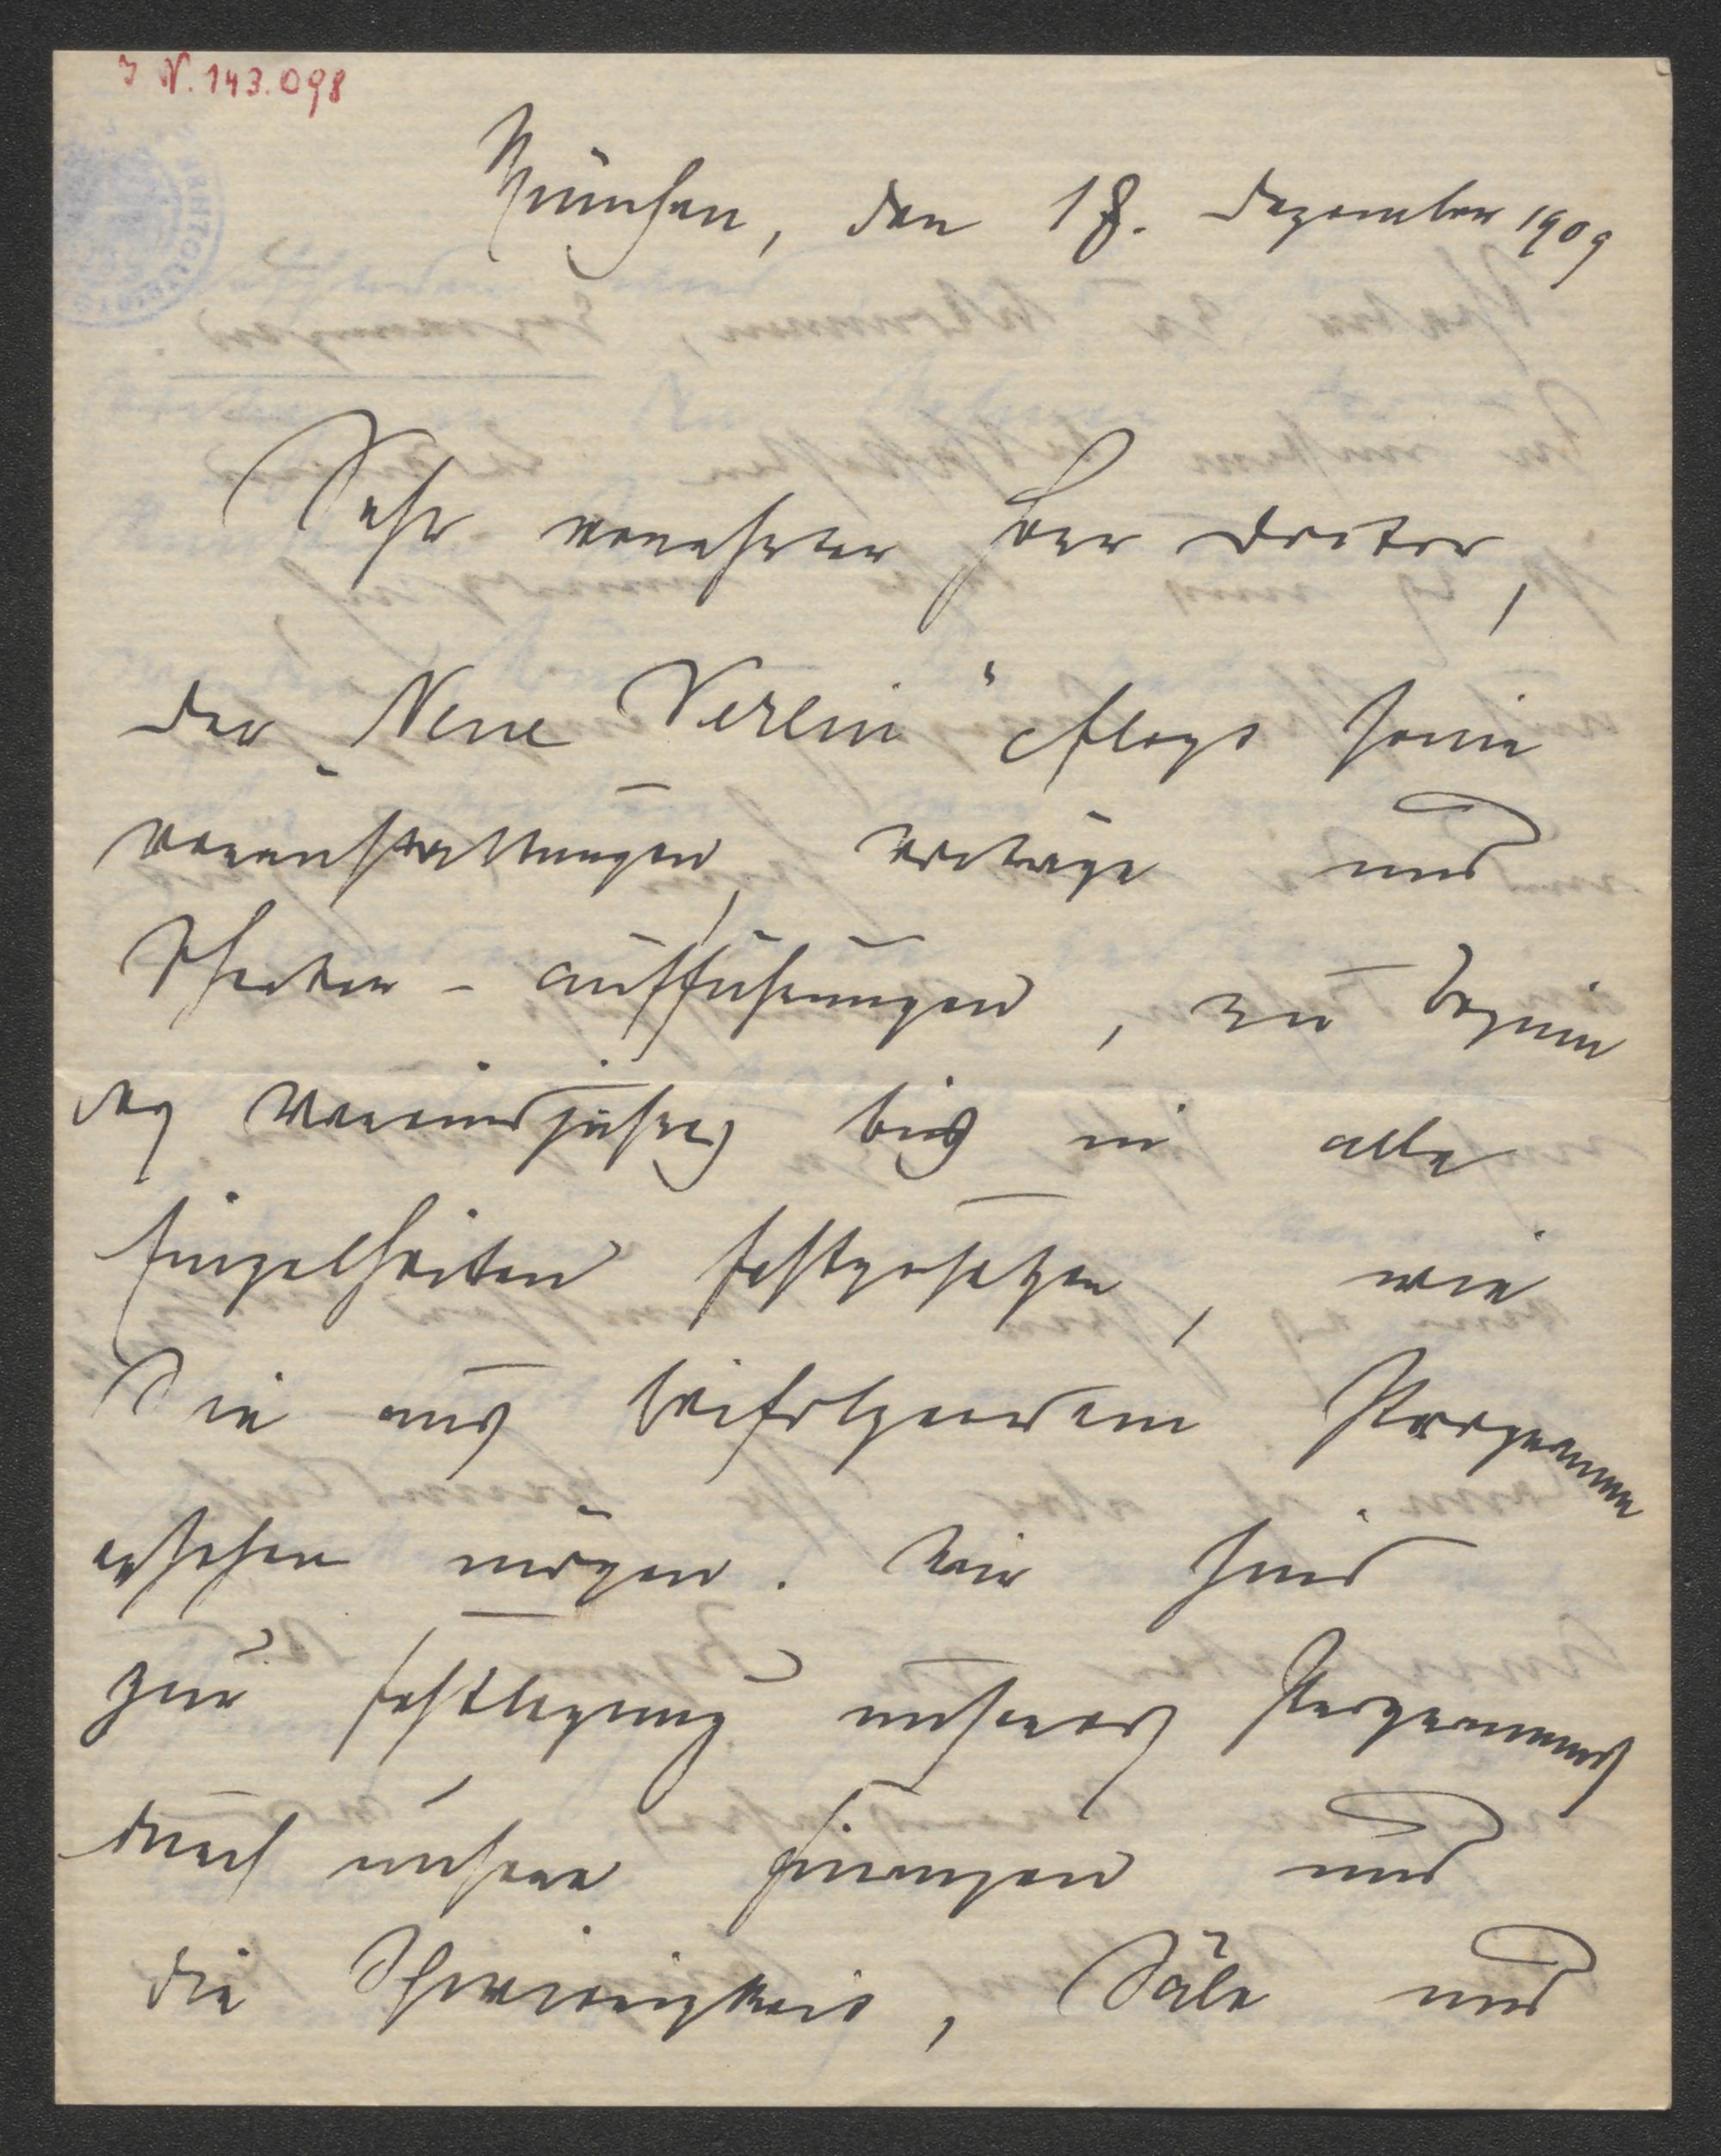 J. N. 143.098
München, den 18. Dezember 1909
Sehr verehrter Herr Doctor,
der „Neue Verein" pflegt seine
Veranstaltungen, Vorträge und
Theater-Aufführungen, zu Beginn
des Vereinsjahres bis in alle
Einzelheiten festzusetzen, wie
Sie aus beifolgendem Programm
ersehen mögen. Wir sind
zur Festlegung unseres Programmes
durch unsere Finanzen und
die Schwierigkeit, Säle und